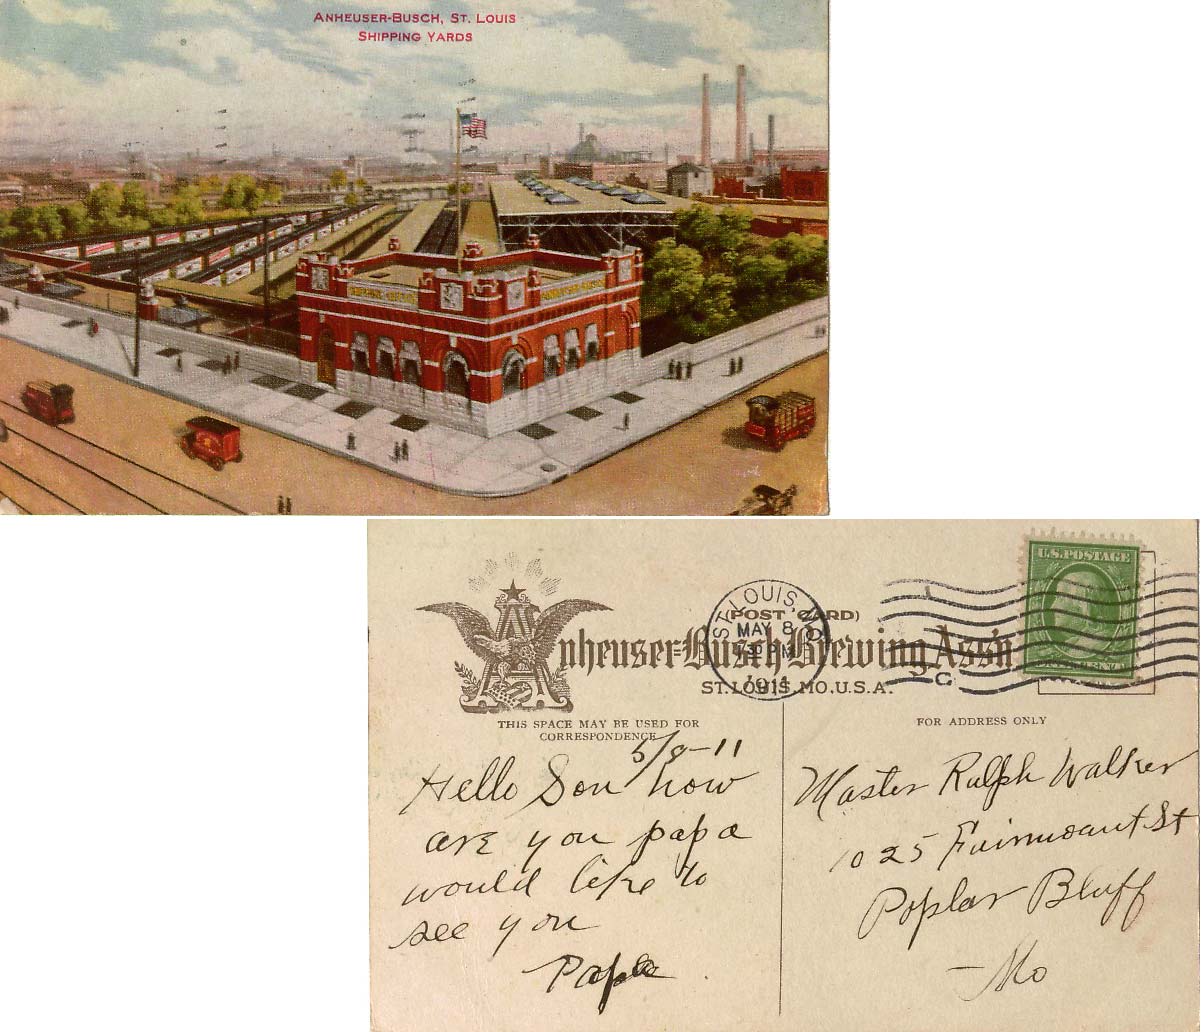 ANHEUSER-BUSCH, ST. LOUIS
SHIPPING YARDS
U.S. POSTAGE
(POST CARD)
Anheuser-Busch Brewing Ass'n
ST. LOUIS, MO. U.S.A.
ST. LOUIS, MO.
MAY 8
30 PM
1911
C
THIS SPACE MAY BE USED FOR
CORRESPONDENCE
FOR ADDRESS ONLY
5/8-11
Hello Son how
are you papa
would like to
see you
Papa
Master Ralph Walker
1025 Fairmount St
Poplar Bluff
Mo